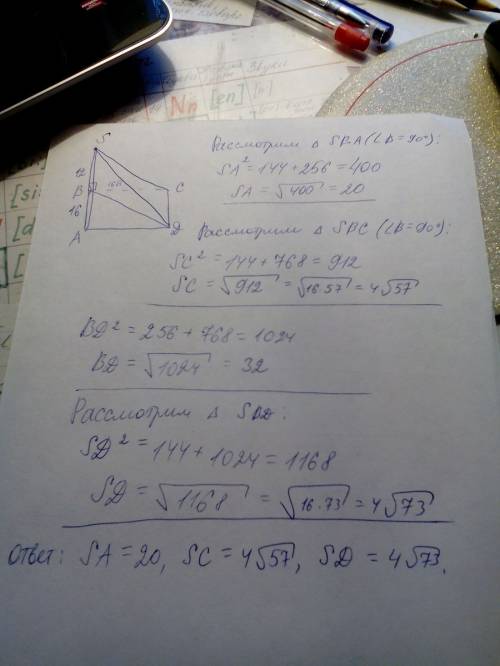 Звуки
Nn [en] [n]
S
12
B 16√3 C
16
A D
Рассмотрим Δ SBA (∠B=90°):
SA² = 144 + 256 = 400
SA = √400 = 20
Рассмотрим Δ SBC (∠B=90°):
SC² = 144 + 768 = 912
SC = √912 = √16·57 = 4√57
BD² = 256 + 768 = 1024
BD = √1024 = 32
Рассмотрим Δ SBD:
SD² = 144 + 1024 = 1168
SD = √1168 = √16·73 = 4√73
Ответ: SA = 20, SC = 4√57, SD = 4√73.